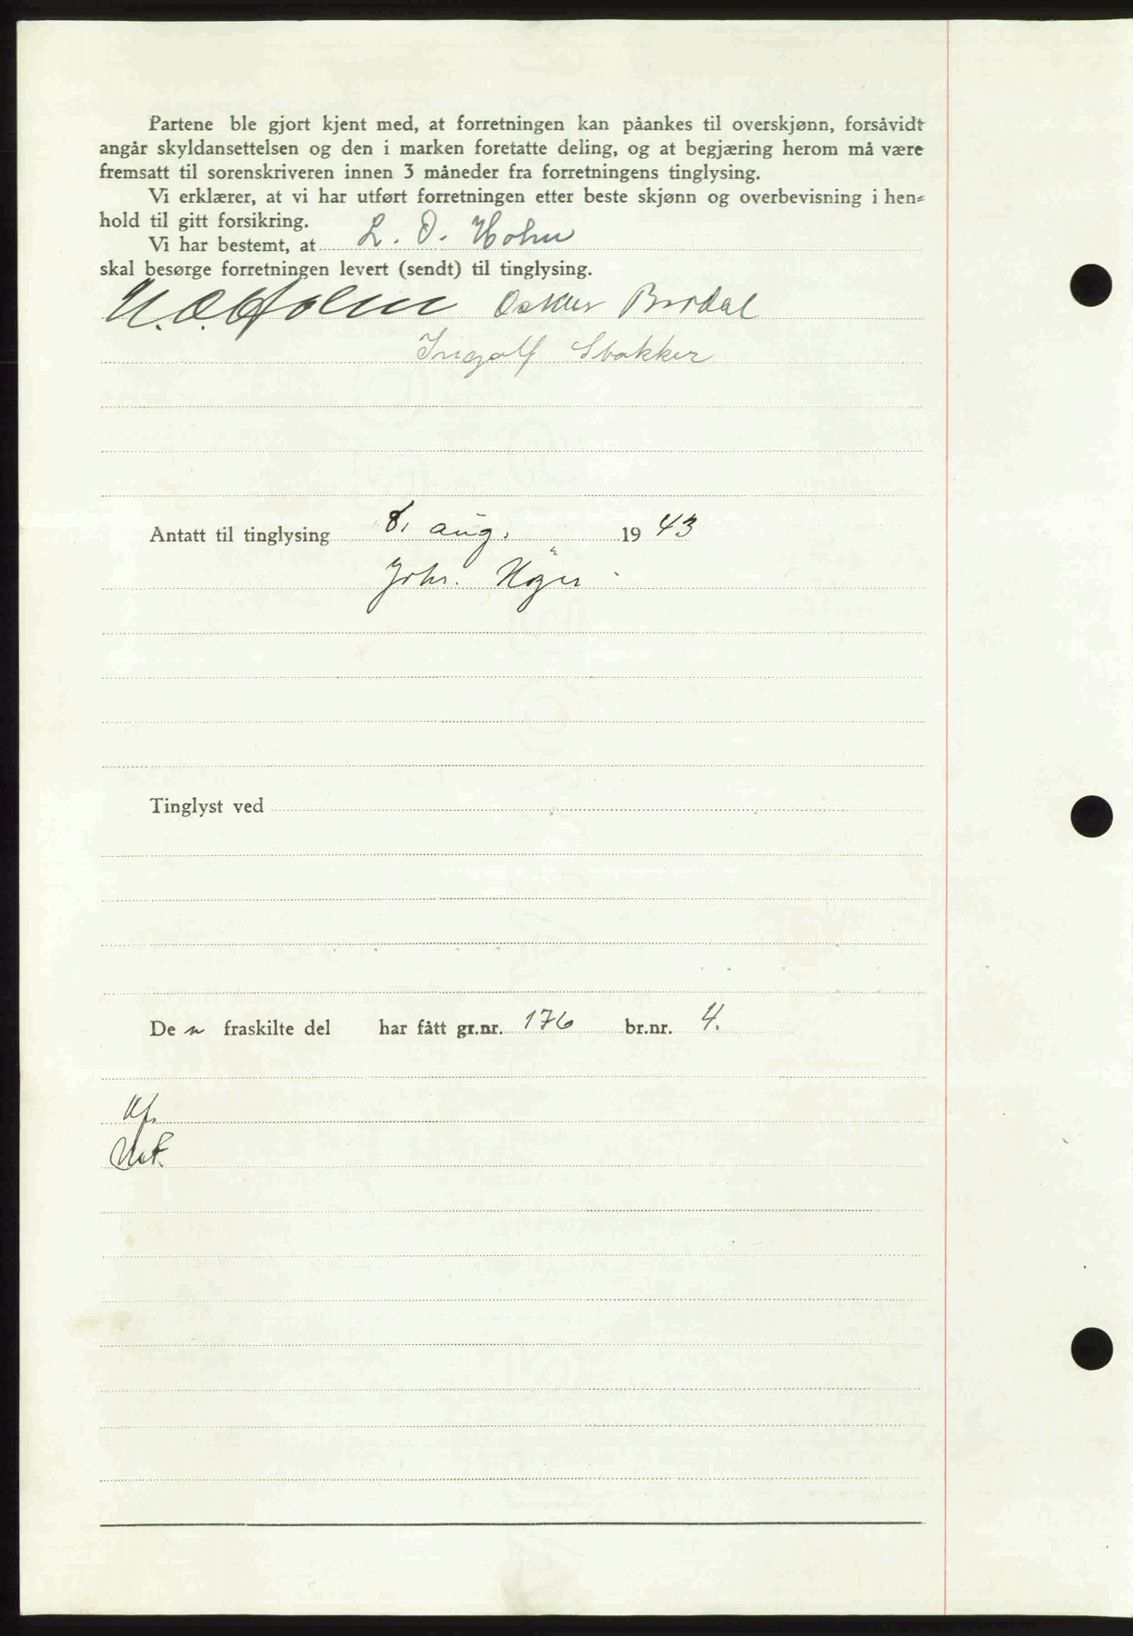 Partene ble gjort kjent med, at forretningen kan påankes til overskjønn, forsåvidt
angår skyldansettelsen og den i marken foretatte deling, og at begjæring herom må være
fremsatt til sorenskriveren innen 3 måneder fra forretningens tinglysing.
Vi erklærer, at vi har utført forretningen etter beste skjønn og overbevisning i hen-
hold til gitt forsikring.
Vi har bestemt, at L. O. Holm
skal besørge forretningen levert (sendt) til tinglysing.
Holm Oskar Brodal
Ingolf Stokker
Antatt til tinglysing 8. aug. 1943
Joh.
Tinglyst ved
De n fraskilte del har fått gr.nr. 176 br.nr. 4.